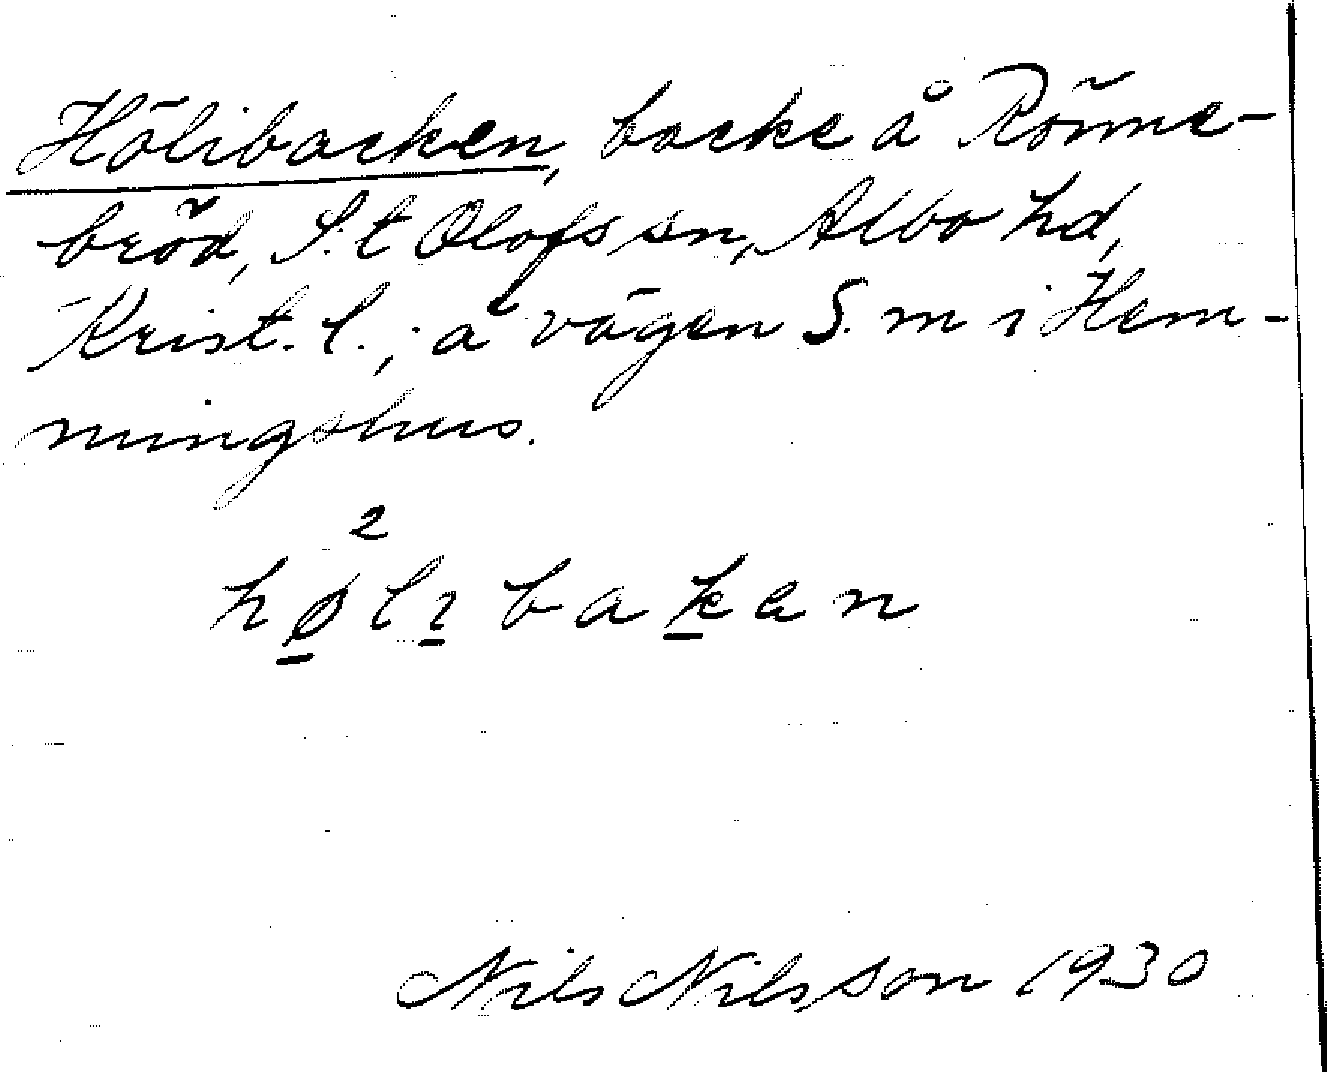 Hölibacken, backe å Rönne-
bröd, S:t Olofs sn, Albo hd,
Krist. l.; å vägen S. m i Hem-
mingshus.
2
hølibakan
Nils Nilsson 1930